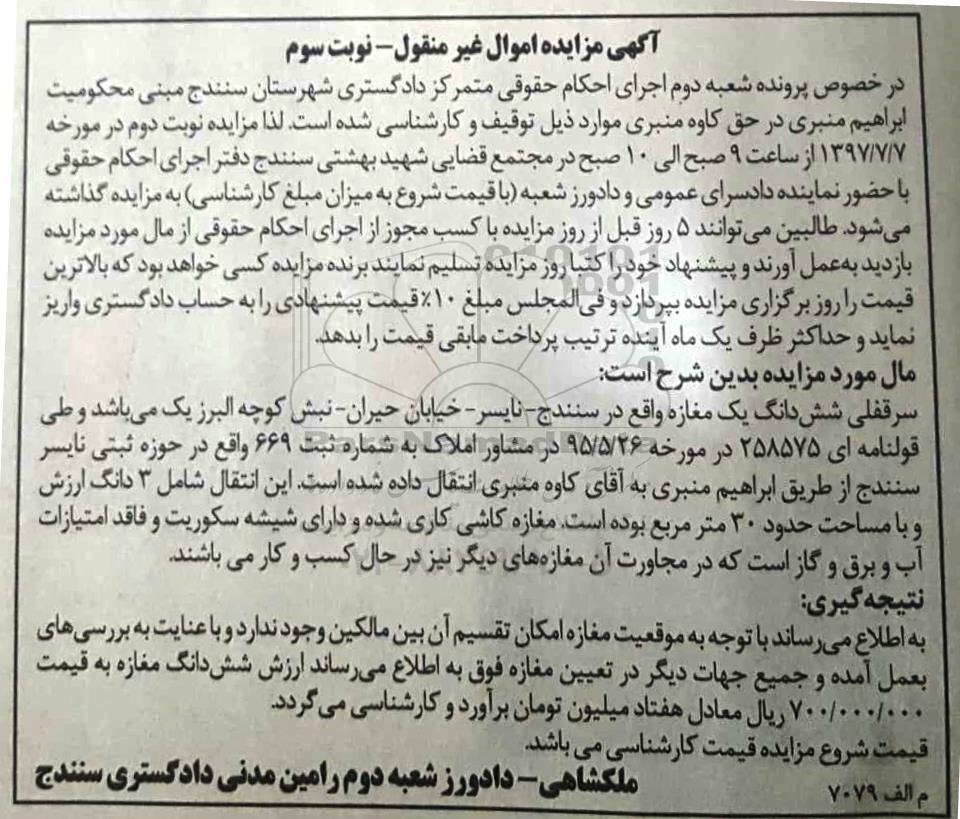 آگهی مزایده اموال غیر منقول – نوبت سوم
در خصوص پرونده شعبه دوم اجرای احکام حقوقی متمرکز دادگستری شهرستان سنندج مبنی محکومیت
ابراهیم منبری در حق کاوه منبری موارد ذیل توقیف و کارشناسی شده است. لذا مزایده نوبت دوم در مورخه
۱۳۹۷/۷/۷ از ساعت ۹ صبح الی ۱۰ صبح در مجتمع قضایی شهید بهشتی سنندج دفتر اجرای احکام حقوقی
با حضور نماینده دادسرای عمومی و دادورز شعبه (با قیمت شروع به میزان مبلغ کارشناسی) به مزایده گذاشته
می‌شود. طالبین می‌توانند ۵ روز قبل از روز مزایده با کسب مجوز از اجرای احکام حقوقی از مال مورد مزایده
بازدید به‌عمل آورند و پیشنهاد خود را کتبا روز مزایده تسلیم نمایند برنده مزایده کسی خواهد بود که بالاترین
قیمت را روز برگزاری مزایده بپردازد و فی‌المجلس مبلغ ۱۰٪ قیمت پیشنهادی را به حساب دادگستری واریز
نماید و حداکثر ظرف یک ماه آینده ترتیب پرداخت مابقی قیمت را بدهد.
مال مورد مزایده بدین شرح است:
سرقفلی شش‌دانگ یک مغازه واقع در سنندج-نایسر- خیابان حیران-نبش کوچه البرز یک می‌باشد و طی
قولنامه ای ۲۵۸۵۷۵ در مورخه ۹۵/۵/۲۶ در مشاور املاک به شماره ثبت ۶۶۹ واقع در حوزه ثبتی نایسر
سنندج از طریق ابراهیم منبری به آقای کاوه منبری انتقال داده شده است. این انتقال شامل ۳ دانگ ارزش
و با مساحت حدود ۳۰ متر مربع بوده است. مغازه کاشی کاری شده و دارای شیشه سکوریت و فاقد امتیازات
آب و برق و گاز است که در مجاورت آن مغازه‌های دیگر نیز در حال کسب و کار می باشند.
نتیجه‌گیری:
به اطلاع می‌رساند با توجه به موقعیت مغازه امکان تقسیم آن بین مالکین وجود ندارد و با عنایت به بررسی‌های
بعمل آمده و جمیع جهات دیگر در تعیین مغازه فوق به اطلاع می‌رساند ارزش شش‌دانگ مغازه به قیمت
۷۰۰/۰۰۰/۰۰۰ ریال معادل هفتاد میلیون تومان برآورد و کارشناسی می‌گردد.
قیمت شروع مزایده قیمت کارشناسی می باشد.
ملکشاهی- دادورز شعبه دوم رامین مدنی دادگستری سنندج
م الف ۷۰۷۹